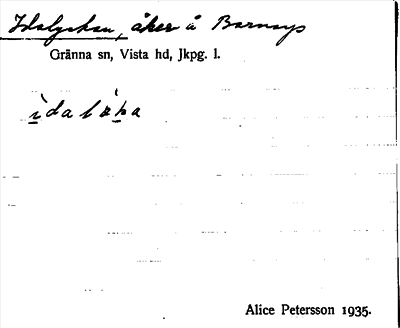 Idalyckan, åker å Barnarps
Gränna sn, Vista hd, Jkpg. l.
Alice Petersson 1935.